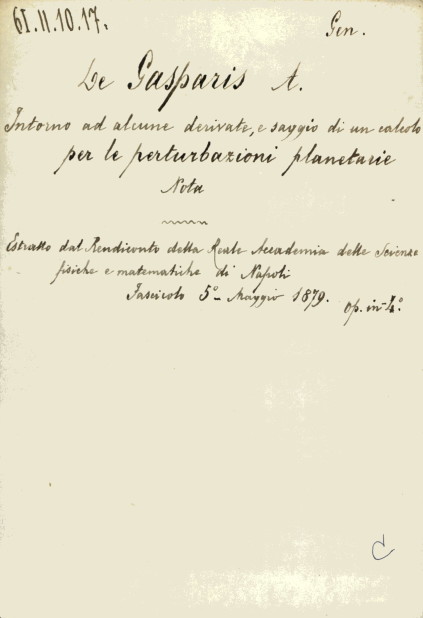 61.11.10.17.
Gen.
De Gasparis A.
Intorno ad alcune derivate, e saggio di un calcolo
per le perturbazioni planetarie
Nota
Estratto dal Rendiconto della Reale Accademia delle Scienze
fisiche e matematiche di Napoli
Fascicolo 5° Maggio 1879.
op. in-4°.
C